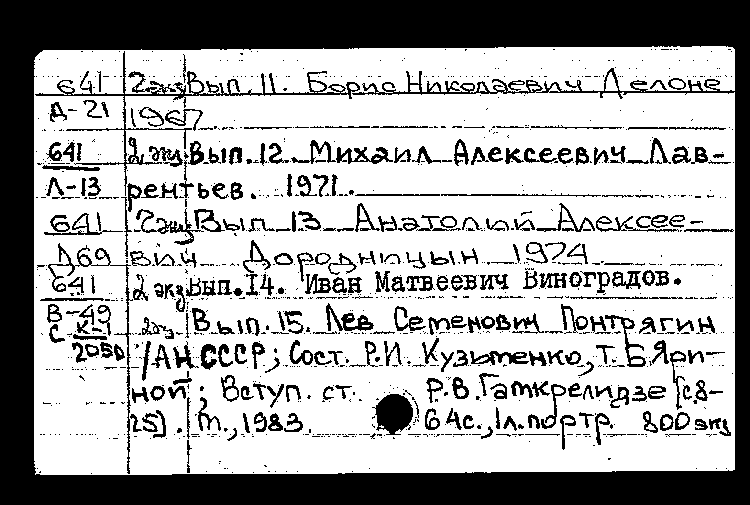 641 2 экз Вып. 11. Борис Николаевич Делоне
Д-21 1967
641 2 экз. Вып. 12. Михаил Алексеевич Лав-
Л-13 рентьев. 1971.
641 2 экз Вып 13 Анатолий Алексее-
Д69 вич Дородницын 1974
641 2 экз Вып.14. Иван Матвеевич Виноградов.
В-49
С К-1 2 экз. Вып. 15. Лев Семенович Понтрягин
2050 /АН СССР; Сост. Р.И. Кузьменко, Т.Б Яри-
ной; Вступ. ст. Р.В. Гамкрелидзе [с.8-
25]. М., 1983. 64с., 1л. портр. 800 экз